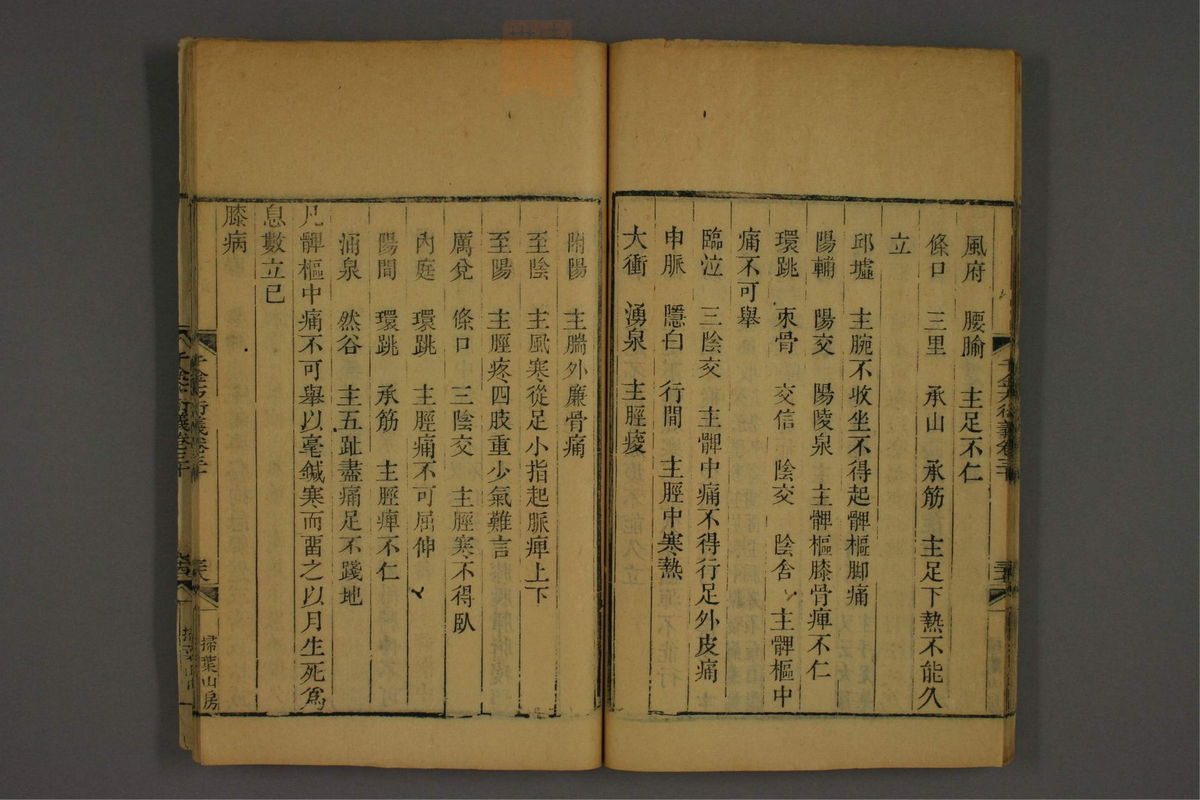 風府　腰腧　主足不仁
條口　三里　承山　承筋　主足下熱不能久
立
邱墟　主腕不收坐不得起髀樞脚痛
陽輔　陽交　陽陵泉　主髀樞膝骨痺不仁
環跳　束骨　交信　陰交　陰舍　主髀樞中
痛不可舉
臨泣　三陰交　主髀中痛不得行足外皮痛
申脈　隱白　行間　主脛中寒熱
大衝　湧泉　主脛痠
跗陽　主腨外廉骨痛
至陰　主風寒從足小指起脈痺上下
至陽　主脛疼四肢重少氣難言
厲兌　條口　三陰交　主脛寒不得臥
內庭　環跳　主脛痛不可屈伸
陽間　環跳　承筋　主脛痺不仁
涌泉　然谷　主五趾盡痛足不踐地
凡髀樞中痛不可舉以毫鍼寒而留之以月生死為
息數立已
膝病
千金方衍義卷三十
掃葉山房